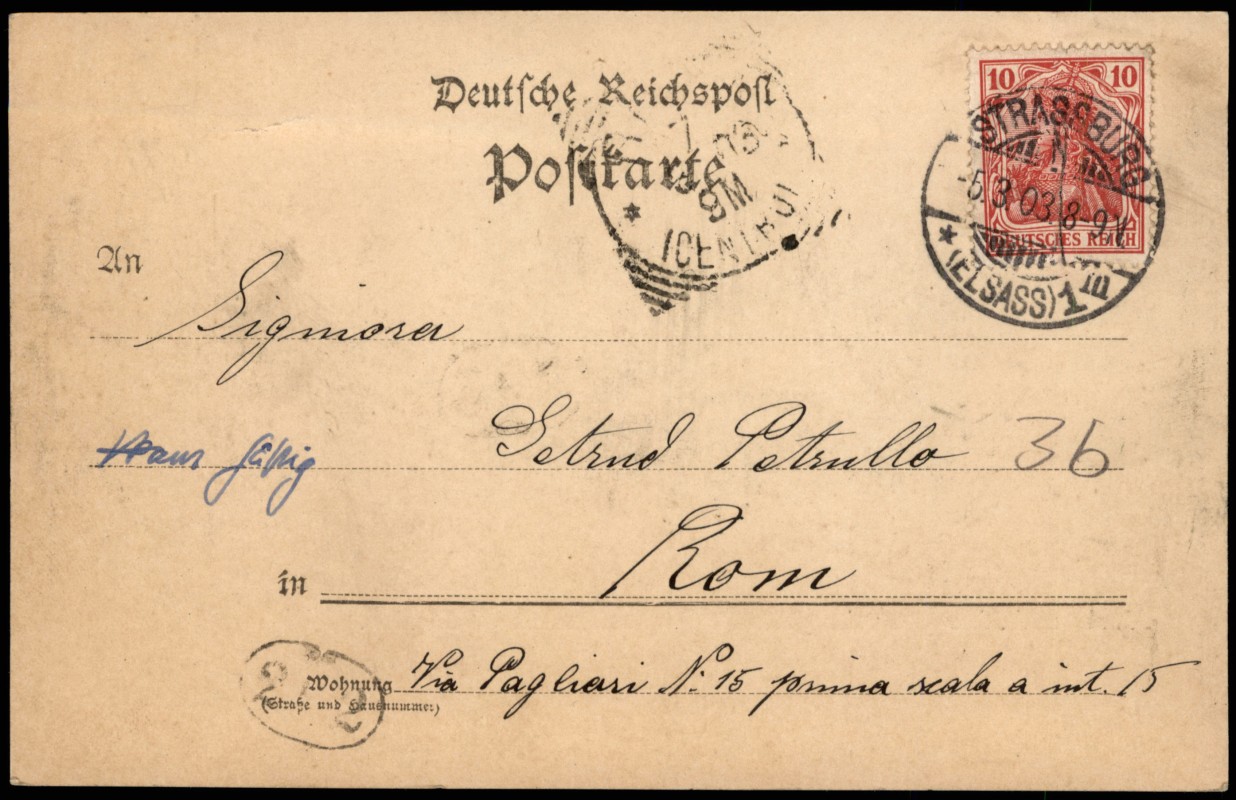 Deutsche Reichspost
Postkarte
10 10
DEUTSCHES REICH
STRASSBURG
-5.3.03.8-9V.
* (ELSASS) 1 m
7 03
9M
* (CENTRO)
An Signora
Getrud Petrullo 36
Haus
in Rom
Wohnung Via Pagliari N. 15 prima scala a int. 15
(Straße und Hausnummer)
2 2